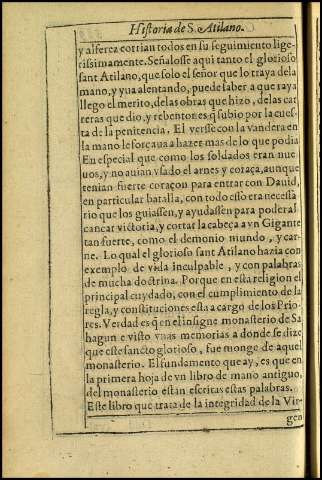 Historia de S. Atilano.
y alferez corrian todos en su seguimiento lige-
rissimamente. Señalosse aqui tanto el glorioso
sant Atilano, que solo el señor que lo traya dela
mano, y yua alentando, puede saber a que raya
llego el merito, de las obras que hizo, delas car
reras que dio, y rebentones q̃ subio por la cues-
ta de la penitencia. El verse con la vandera en
la mano le forçaua a hazer mas de lo que podia
En especial que como los soldados eran nue
uos, y no auian vsado el arnes y coraça, aunque
tenian fuerte coraçon para entrar con Dauid,
en particular batalla, con todo esso era necessa
rio que los guiassen, y ayudassen para poder al
cançar victoria, y cortar la cabeça a vn Gigante
tan fuerte, como el demonio mundo, y car-
ne. Lo qual el glorioso sant Atilano hazia con
exemplo de vida inculpable, y con palabras
de mucha doctrina. Porque en esta religion el
principal cuydado, con el cumplimiento de la
regla, y constituciones esta a cargo de los Prio-
res. Verdad es q̃ en el insigne monasterio de Sa
hagun e visto vnas memorias a donde se dize
que este sancto glorioso, fue monge de aquel
monasterio. El fundamento que ay, es que en
la primera hoja de vn libro de mano antiguo,
del monasterio estan escritas estas palabras.
Este libro que trata de la integridad de la Vir-
gen